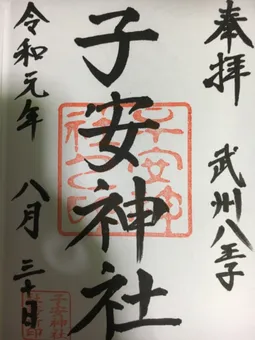 奉拝
武州八王子
子安神社
令和元年
八月
三十日
子安神社